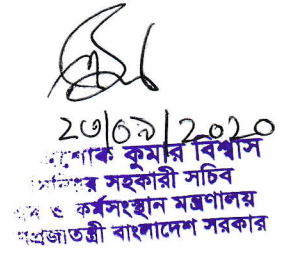 ২৩/০৯/২০২০
অশোক কুমার বিশ্বাস
সিনিয়র সহকারী সচিব
শ্রম ও কর্মসংস্থান মন্ত্রণালয়
গণপ্রজাতন্ত্রী বাংলাদেশ সরকার